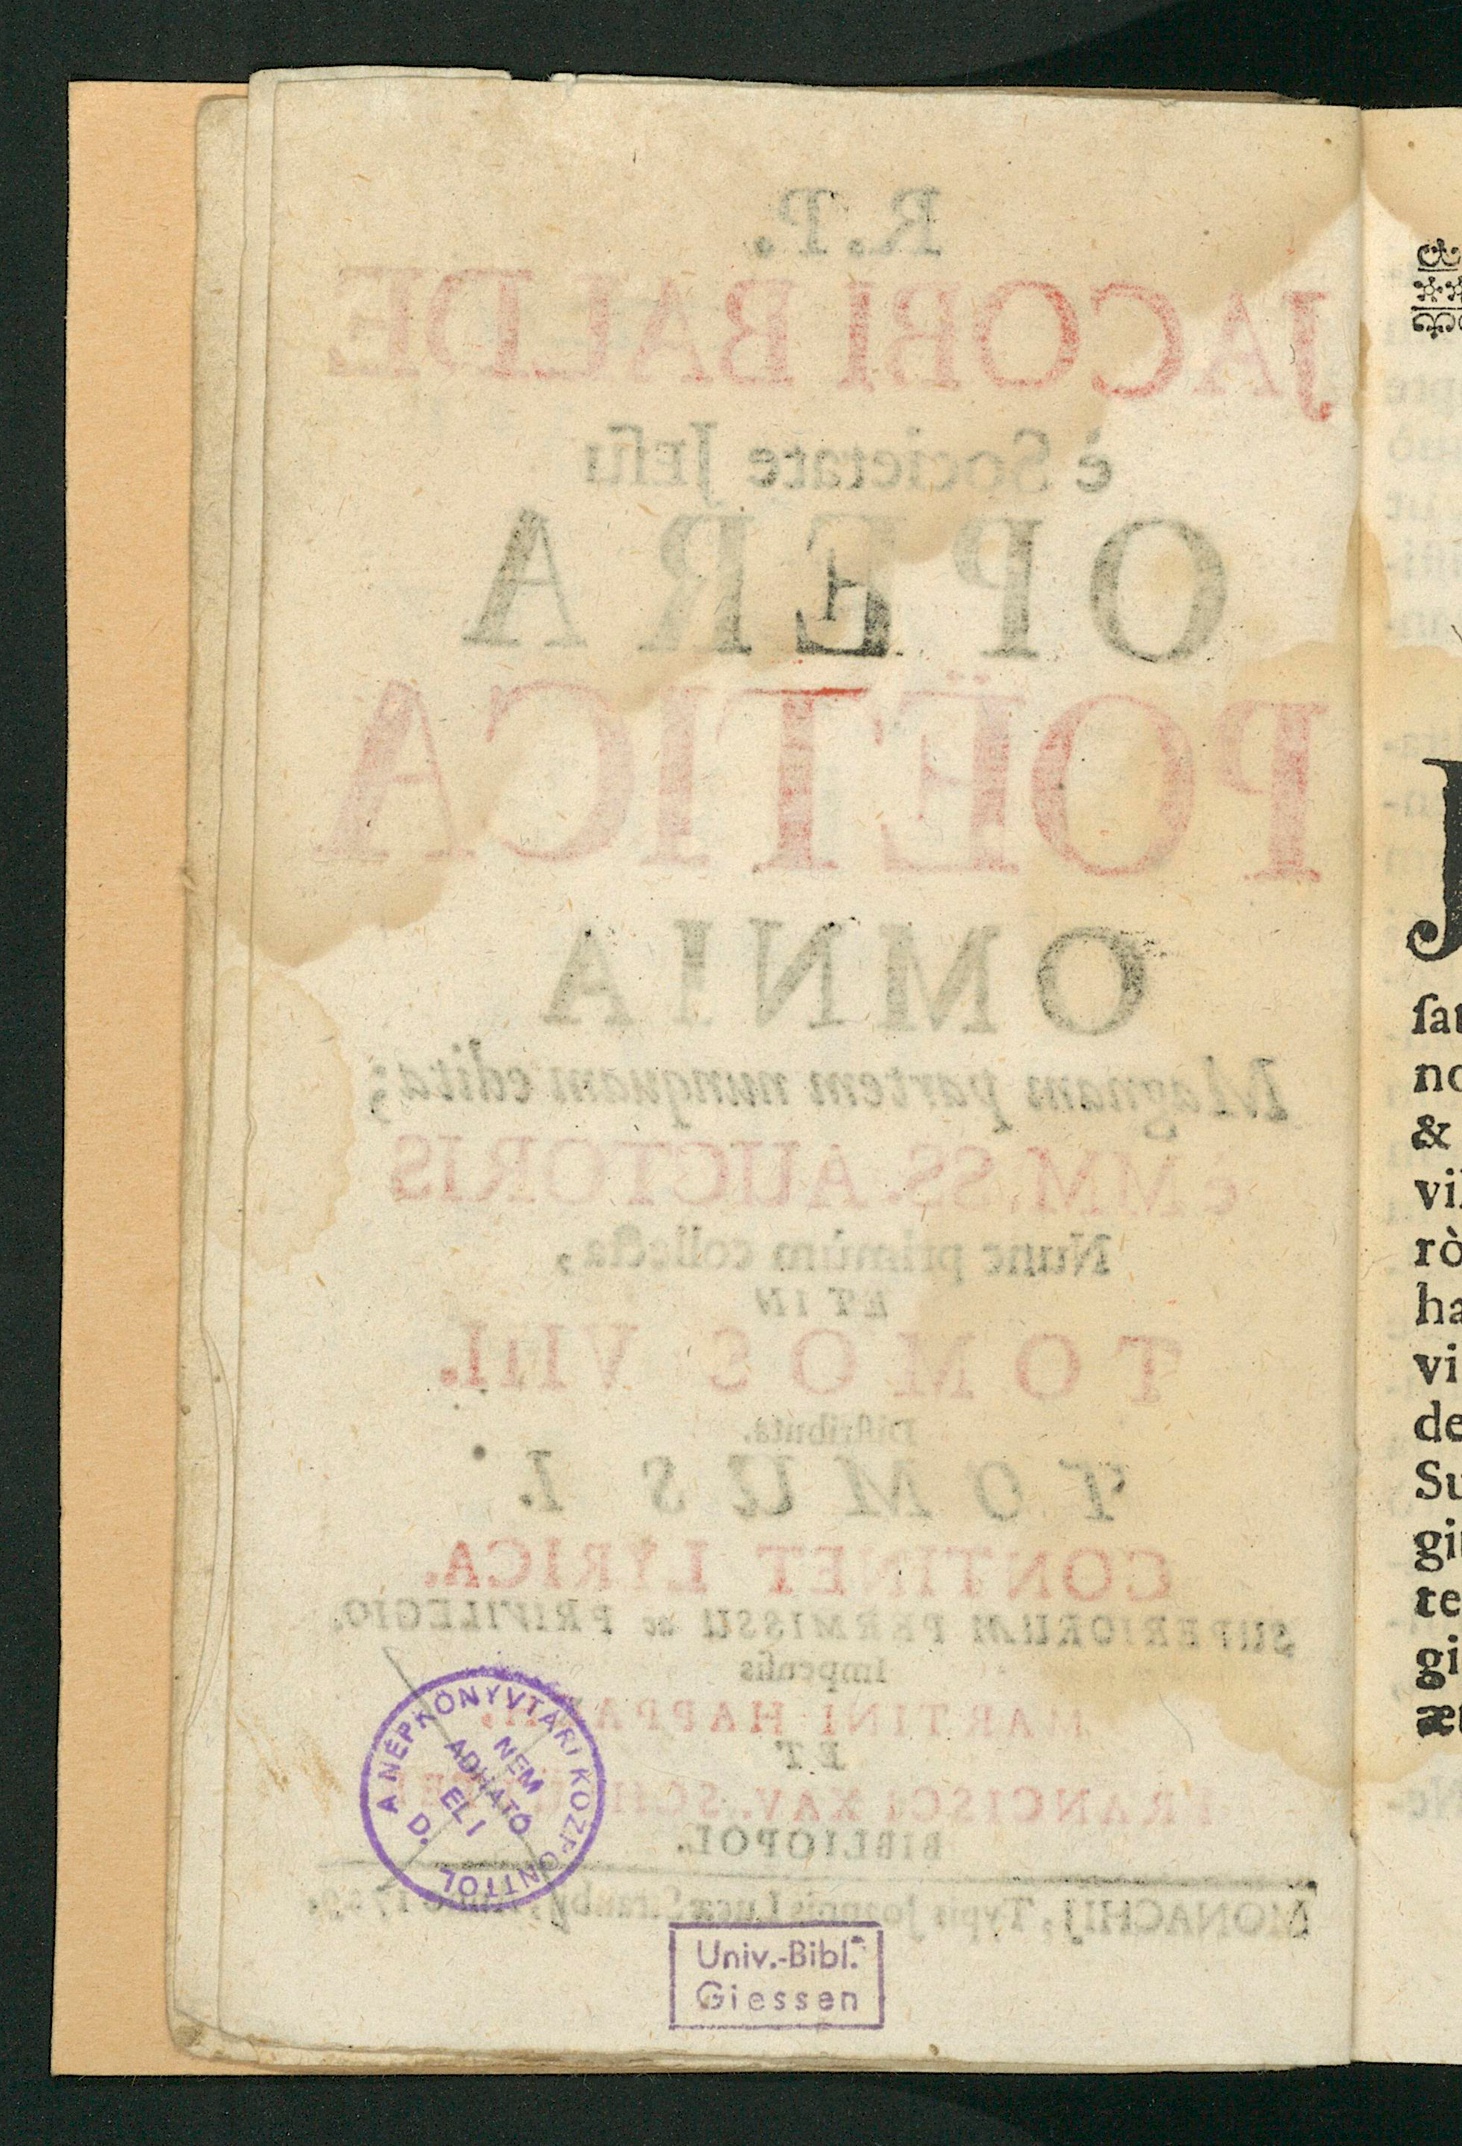 R. P.
JACOBI BALDE
è Societate JEſu
OPERA
POËTICA
OMNIA
Magnam partem nunquam edita;
è MM. SS. AUCTORIS
Nunc primùm collecta,
ET IN
TOMOS VIII.
Diſtributa.
TOMUS I.
CONTINET LYRICA.
SUPERIORUM PERMISSU ac PRIVILEGIO.
Impenſis
MARTINI HAPPACH,
ET
FRANCISC. XAV.
BIBLIOPOL.
MONACHIJ, Typis Joannis Lucæ Straubij, Anno 1729.
A NÉPKÖNYVTÁRI KÖZPONTTÓL
NEM
ADHATÓ
EL!
D.
Univ.-Bibl.
Giessen
J
ſat
no
&
vil
rò
ha
vi
de
Su
gi
te
gi
æt